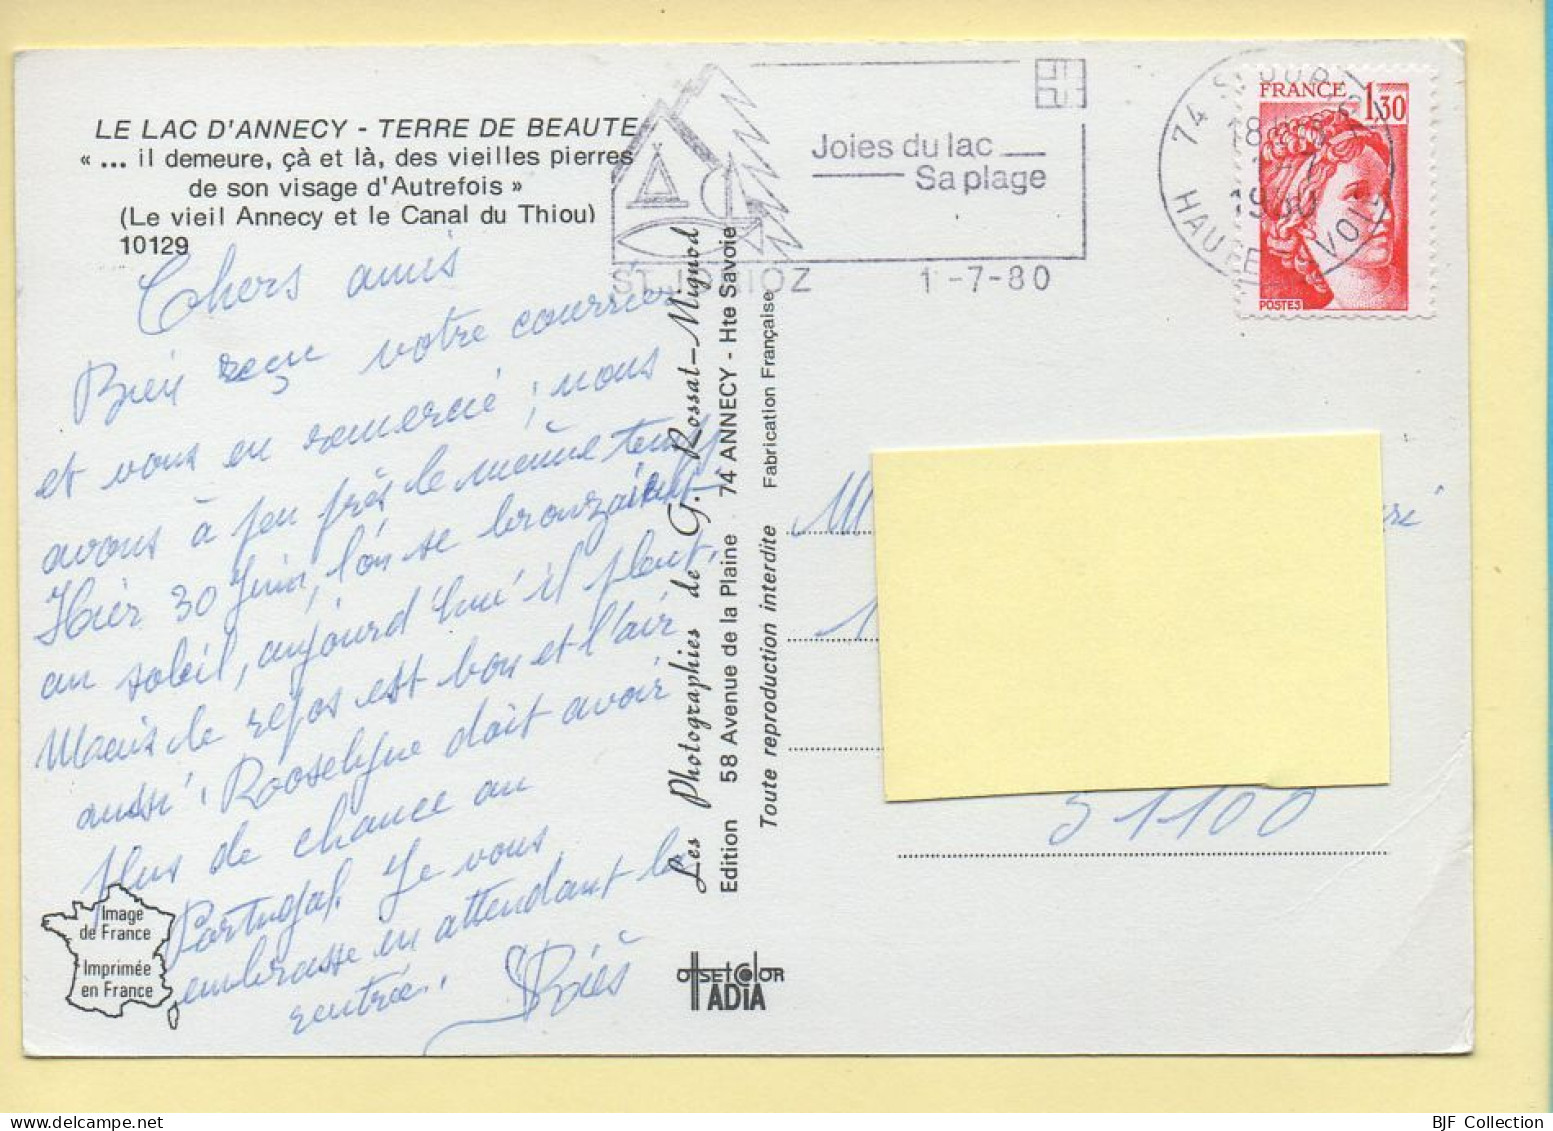 LE LAC D'ANNECY - TERRE DE BEAUTE
« ... il demeure, çà et là, des vieilles pierres
de son visage d'Autrefois »
(Le vieil Annecy et le Canal du Thiou)
10129
Chers amis
Bien reçu votre courrier
et vous en remercie ; nous
avons à peu près le même temps
Hier 30 Juin, l'on se bronzait
au soleil, aujourd'hui il pleut,
Mais le repos est bon et l'air
aussi. Rooselyne doit avoir
plus de chance au
Portugal. Je vous
embrasse en attendant la
rentrée.
Image
de France
Imprimée
en France
Les Photographies de G. Rossat-Mignod
Edition 58 Avenue de la Plaine 74 ANNECY - Hte Savoie
Toute reproduction interdite Fabrication Française
OFFSET COLOR
IADIA
Joies du lac
Sa plage
ST JORIOZ 1-7-80
74 ST JORIOZ
18H
1-7
1980
HAUTE SAVOIE
FRANCE 1,30
POSTES
M
1
51100
BJF Collection